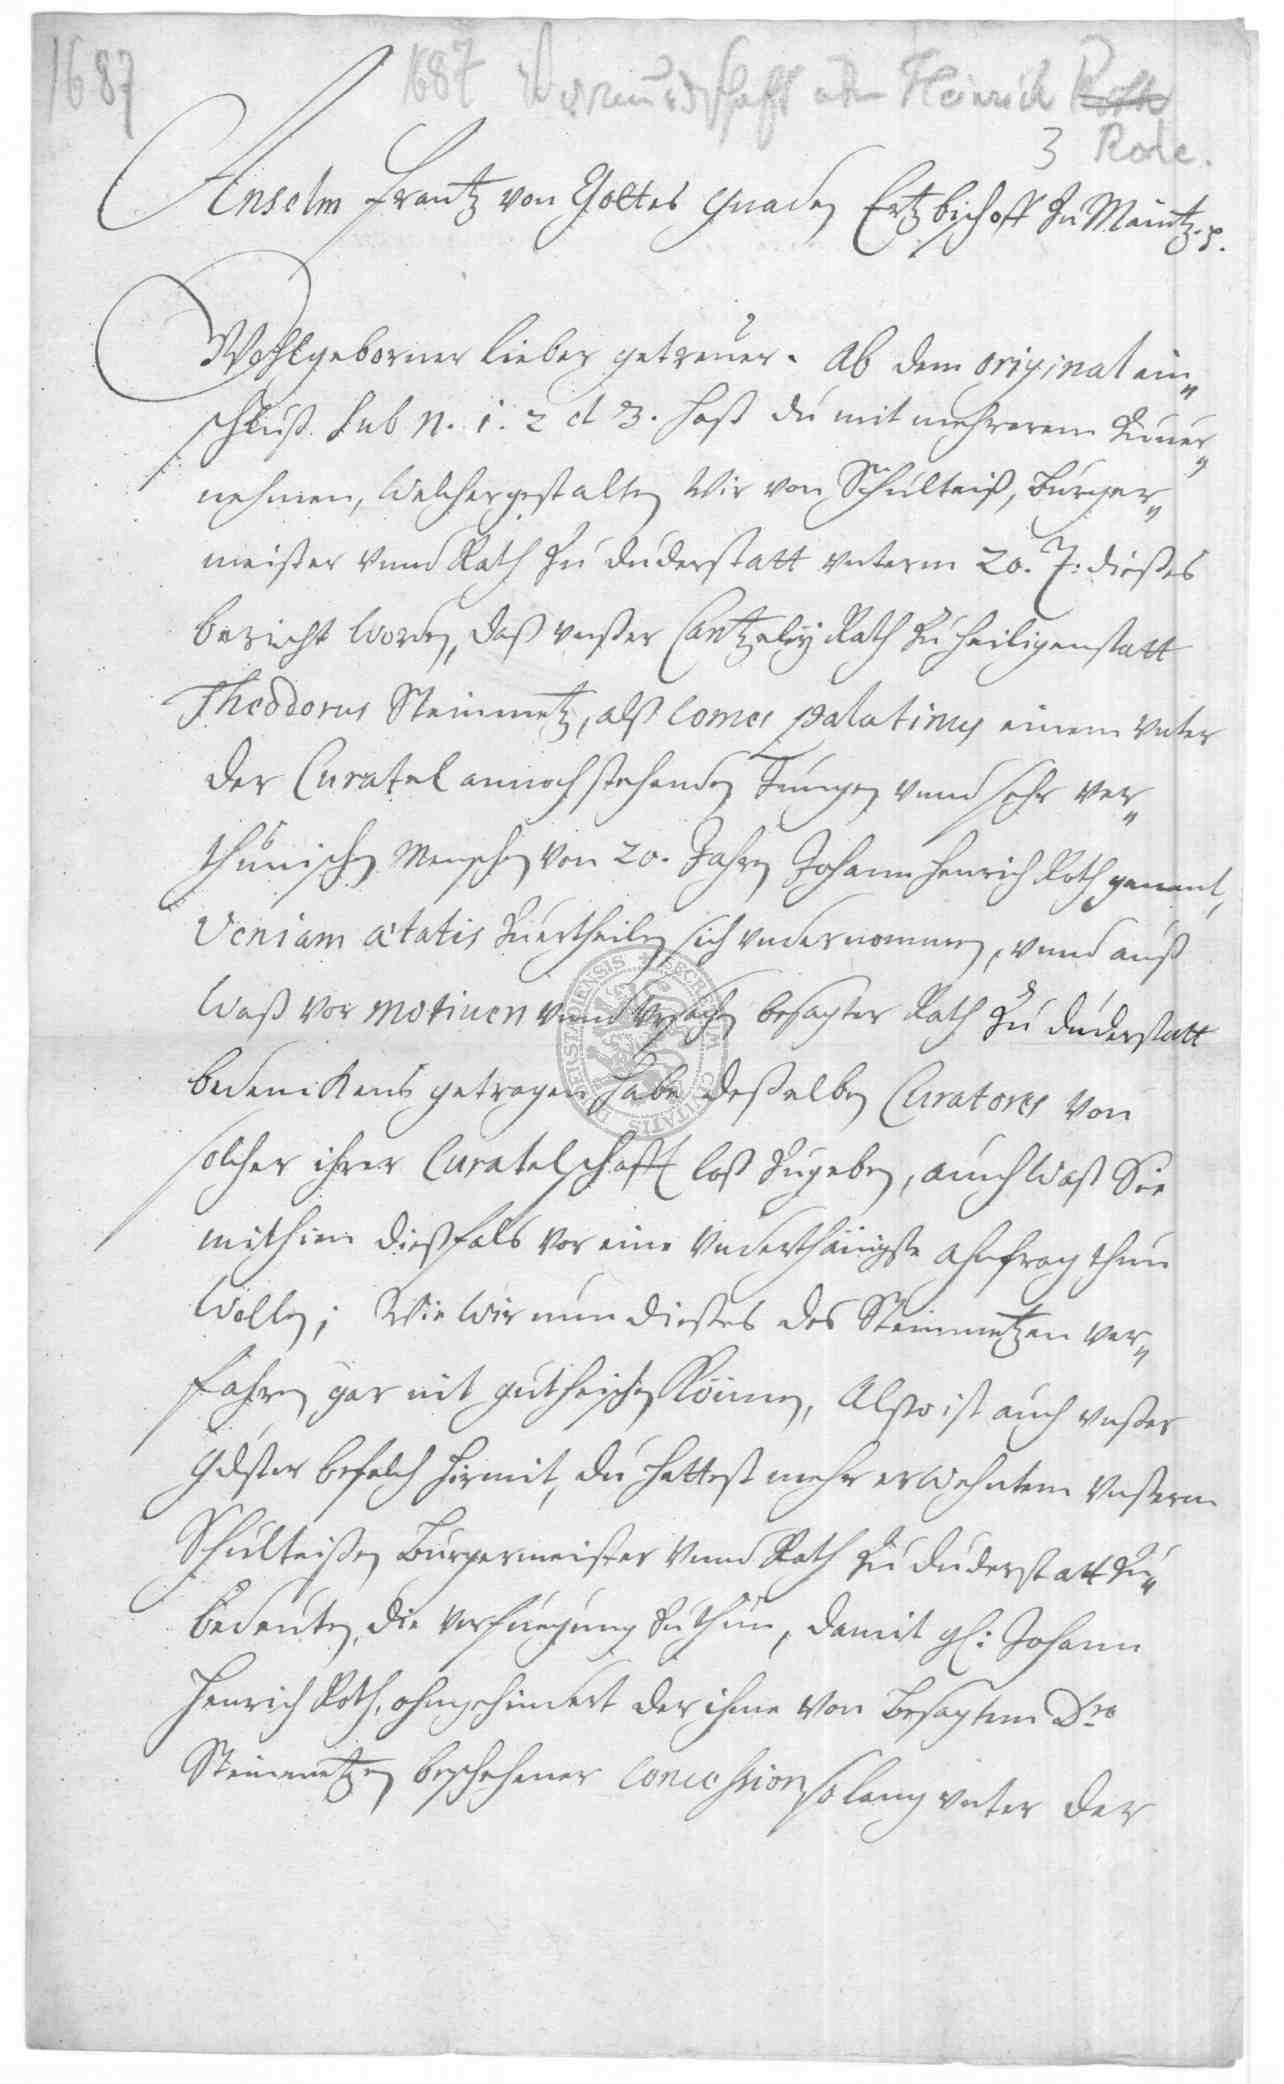 1687
1687 Vormundschaft über Heinrich Roth
3 Rode.
Anselm Frantz von Gottes gnaden Ertzbischoff zu Maintz. p.
Wohlgeborner lieber getreuer. Ab dem original ein„
schluß sub N. 1. 2 et 3. hast du mit mehrerem zuuer„
nehmen, welchergestalten Wir von Schultheiß, Burger„
meister vnnd Rath zu Duderstatt vnterm 20. 7: dießes
bericht worden, daß vnßer Cantzeley Rath zu Heiligenstatt
Theodorus Steinmetz, alß Comes palatinus einem vnter
der Curatel annoch stehenden Jungen vnnd sehr ver„
thunischen Menschen von 20. Jahren Johann Henrich Roth genant,
Veniam ætatis zuertheilen sich vndernommen, vnnd auß
waß vor motiuen vnnd vrsachen besagter Rath zu Duderstatt
bedenckens getragen habe deßelben Curatores von
solcher ihrer Curatelschafft loß zugeben, auch waß Sie
mithin dießfals vor eine vnderthänigste ahnfrag thun
wollen; Wie wir nun dießes des Steinmetzen ver„
fahren gar nit gutheischen können, Also ist auch vnßer
gdster befelch hiermit, du hettest mehr erwehntem vnßerm
Schultheißen Burgermeister vnnd Rath zu Duderstatt zu„
bedeuten, die verfuegung zu thun, damit gl: Johann
Henrich Roth, ohngehindert der ihme von besagtem Dro
Steinmetzen beschehener Concession so lang vnter der
SECRETUM CIVITATIS DUDERSTADIENSIS